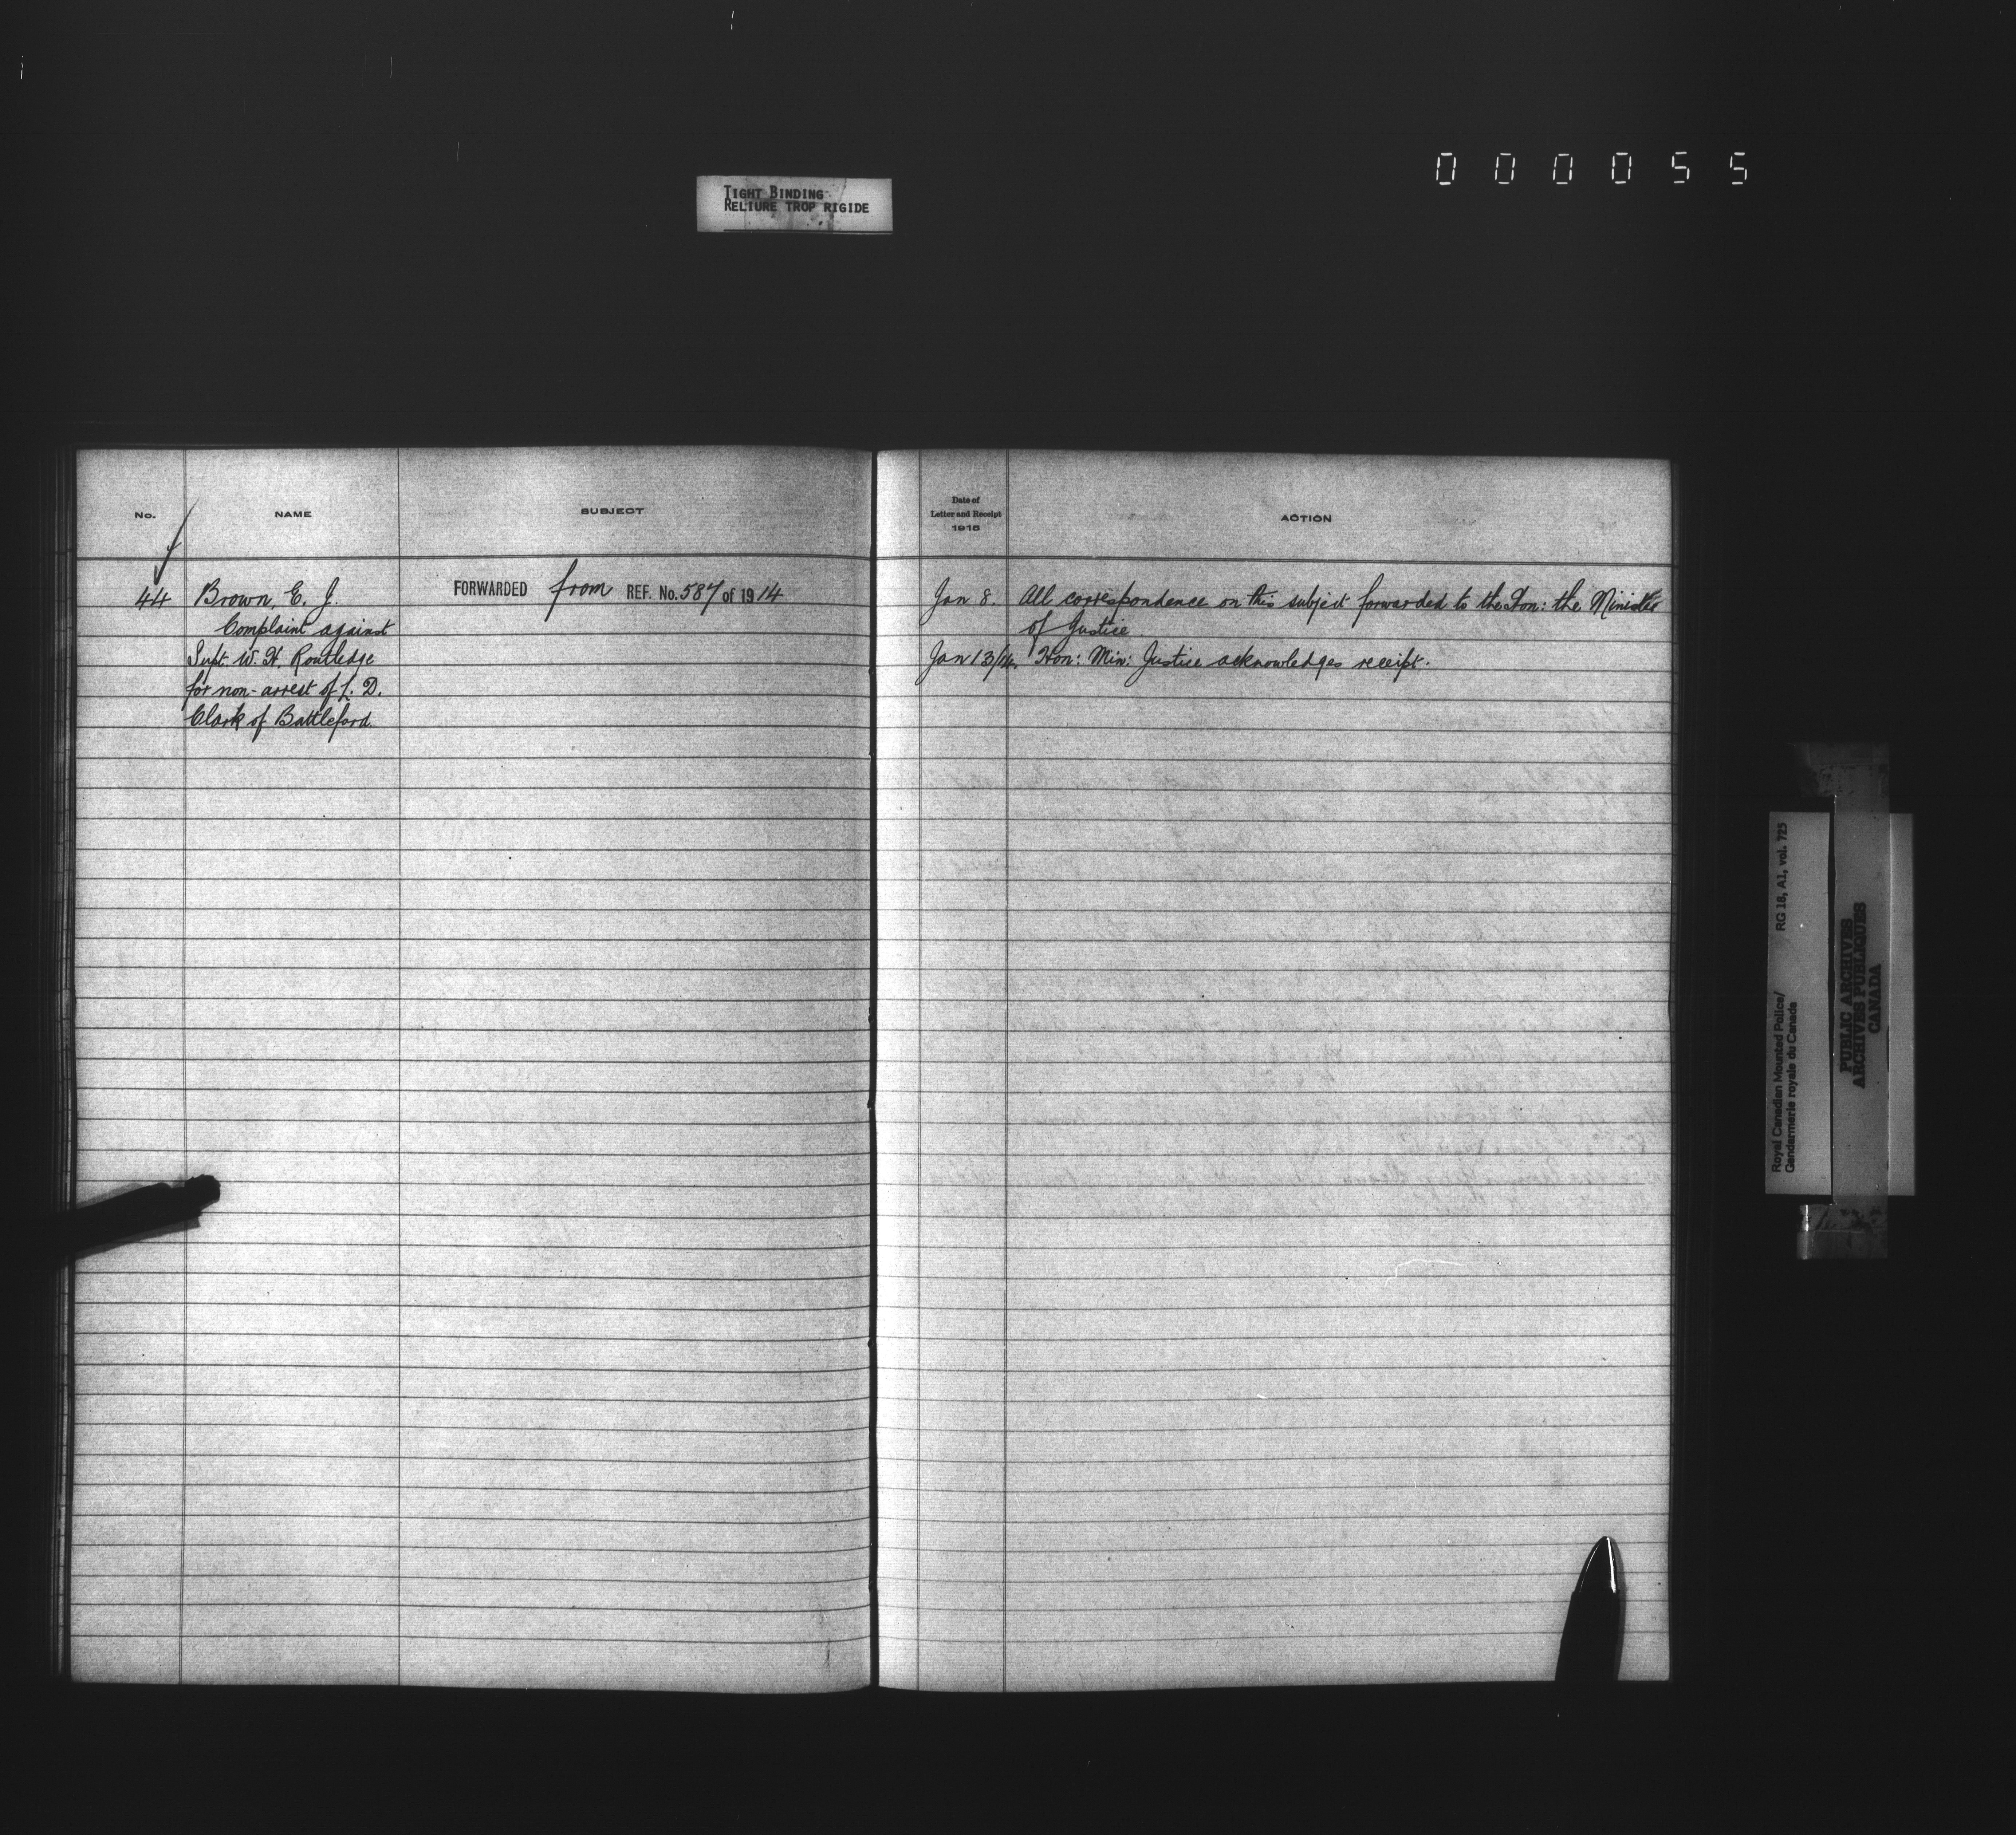 000055
TIGHT BINDING
RELIURE TROP RIGIDE
No. NAME SUBJECT
44 Brown, E. J. FORWARDED from REF. No. 587 of 1914
Complaint against
Supt. W. H. Routledge
for non-arrest of L. D.
Clark of Battleford.
Date of
Letter and Receipt
1915
ACTION
Jan 8. All correspondence on this subject forwarded to the Hon: the Minister
of Justice.
Jan 13/14. Hon: Min: Justice acknowledges receipt.
Royal Canadian Mounted Police/ RG 18, A1, vol. 725
Gendarmerie royale du Canada
PUBLIC ARCHIVES
ARCHIVES PUBLIQUES
CANADA